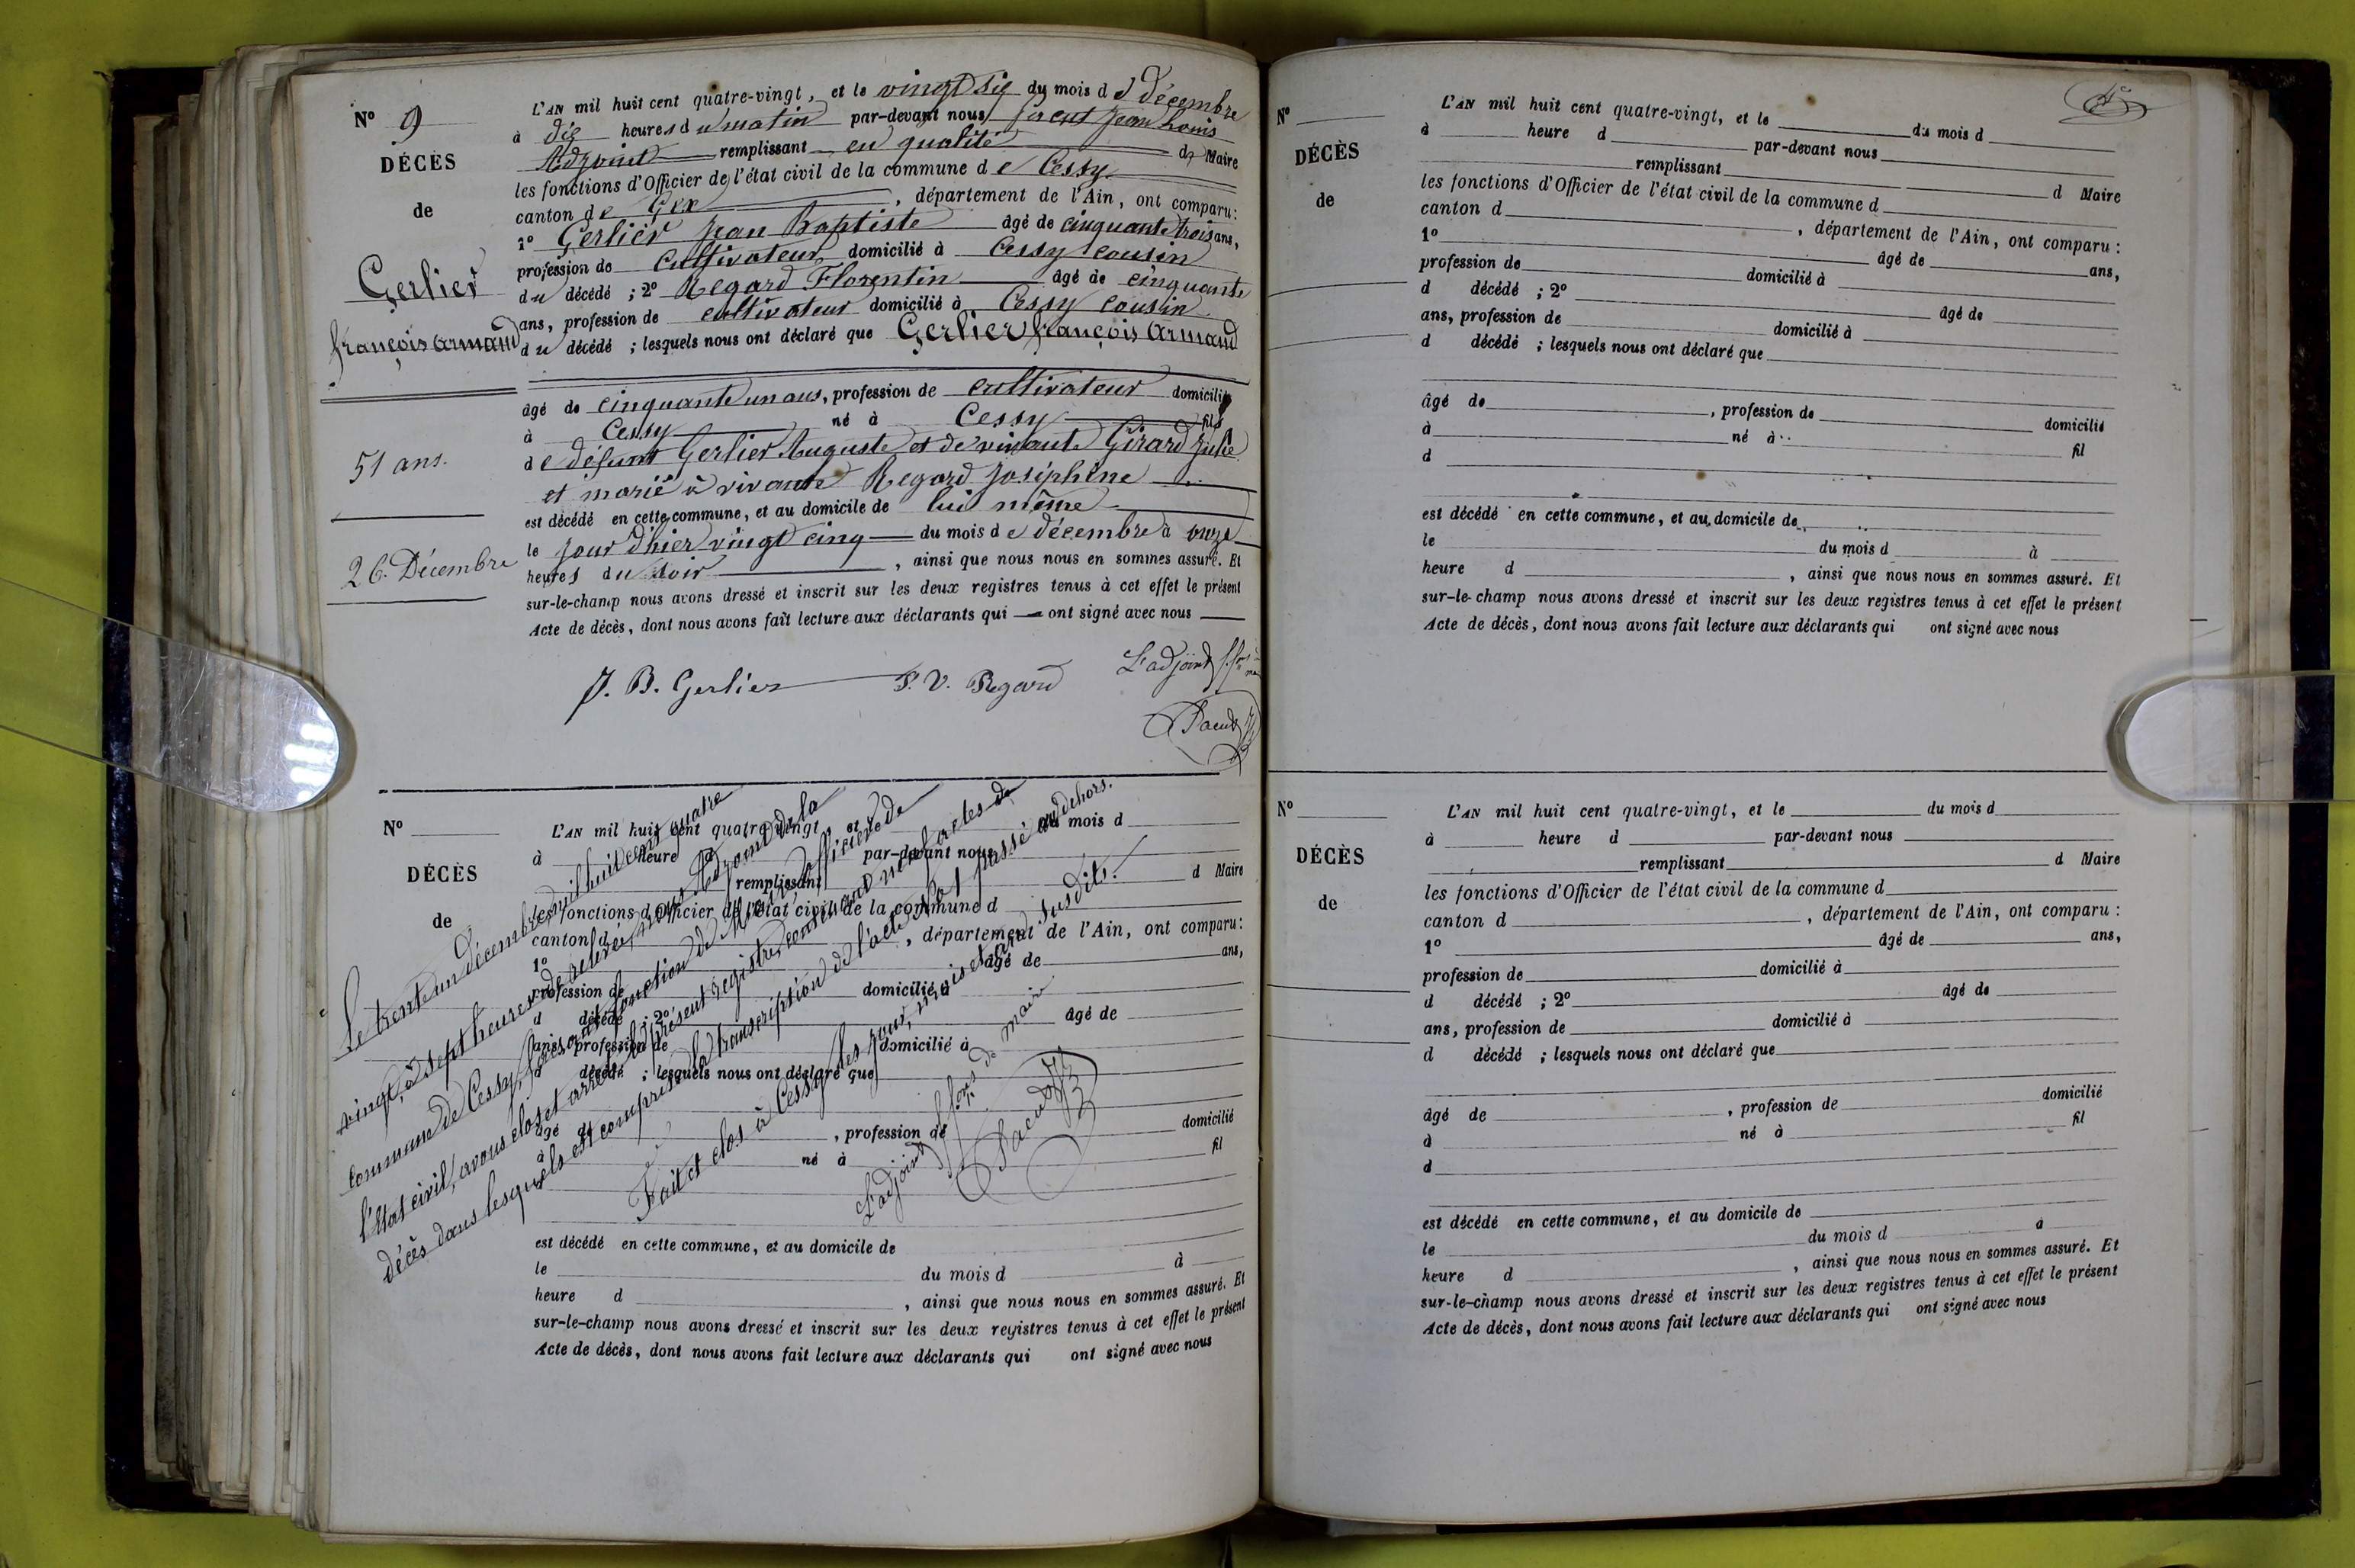 N° 9
DÉCÈS
de
Gerlier
françois armand
51 ans.
26. Décembre
L'AN mil huit cent quatre-vingt, et le vingt six du mois de décembre
à dix heures du matin par-devant nous Jean Louis
Adjoint remplissant en qualité de Maire
les fonctions d'Officier de l'état civil de la commune de Cessy
canton de Gex, département de l'Ain, ont comparu:
1° Gerlier Jean Baptiste âgé de cinquante trois ans,
profession de cultivateur domicilié à Cessy cousin
du décédé; 2° Regard Florentin âgé de cinquante
ans, profession de cultivateur domicilié à Cessy cousin
du décédé; lesquels nous ont déclaré que Gerlier françois Armand
âgé de cinquante un ans, profession de cultivateur domicilié
à Cessy né à Cessy fils
de défunt Gerlier Auguste et de vivante Girard Julie
et marié à vivante Regard Joséphine
est décédé en cette commune, et au domicile de lui même
le jour d'hier vingt cinq du mois de décembre à onze
heures du soir, ainsi que nous nous en sommes assuré. Et
sur-le-champ nous avons dressé et inscrit sur les deux registres tenus à cet effet le présent
Acte de décès, dont nous avons fait lecture aux déclarants qui ont signé avec nous
J. B. Gerlier F. V. Regard L'adjoint
N°
DÉCÈS
de
L'AN mil huit cent quatre-vingt, et le du mois d
à heure par-devant nous
remplissant d Maire
les fonctions d'Officier de l'état civil de la commune d
canton d, département de l'Ain, ont comparu:
1° âgé de ans,
profession de domicilié à
d décédé; 2° âgé de
ans, profession de domicilié à
d décédé; lesquels nous ont déclaré que
âgé de, profession de domicilié
à né à fil
est décédé en cette commune, et au domicile de
le du mois d à
heure d, ainsi que nous nous en sommes assuré. Et
sur-le-champ nous avons dressé et inscrit sur les deux registres tenus à cet effet le présent
Acte de décès, dont nous avons fait lecture aux déclarants qui ont signé avec nous
Le trente un décembre mil huit cent quatre
vingt, à sept heures de relevée, nous Adjoint de la
commune de Cessy, faisant fonction de Maire, officier de
l'état civil, avons clos et arrêté le présent registre, contenant neuf actes de
décès dans lesquels est compris la transcription de l'acte passé au dehors.
Fait et clos à Cessy les jour, mois et an susdits.
L'adjoint f. fons de maire
N°
DÉCÈS
de
L'AN mil huit cent quatre-vingt, et le du mois d
à heure d par-devant nous
remplissant d Maire
les fonctions d'Officier de l'état civil de la commune d
canton d, département de l'Ain, ont comparu:
1° âgé de ans,
profession de domicilié à
d décédé; 2° âgé de
ans, profession de domicilié à
d décédé; lesquels nous ont déclaré que
âgé de, profession de domicilié
à né à fil
d
est décédé en cette commune, et au domicile de
le du mois d à
heure d, ainsi que nous nous en sommes assuré. Et
sur-le-champ nous avons dressé et inscrit sur les deux registres tenus à cet effet le présent
Acte de décès, dont nous avons fait lecture aux déclarants qui ont signé avec nous
N°
DÉCÈS
de
L'AN mil huit cent quatre-vingt, et le du mois d
à heure d par-devant nous
remplissant d Maire
les fonctions d'Officier de l'état civil de la commune d
canton d, département de l'Ain, ont comparu:
1° âgé de ans,
profession de domicilié à
d décédé; 2° âgé de
ans, profession de domicilié à
d décédé; lesquels nous ont déclaré que
âgé de, profession de domicilié
à né à fil
d
est décédé en cette commune, et au domicile de
le du mois d à
heure d, ainsi que nous nous en sommes assuré. Et
sur-le-champ nous avons dressé et inscrit sur les deux registres tenus à cet effet le présent
Acte de décès, dont nous avons fait lecture aux déclarants qui ont signé avec nous